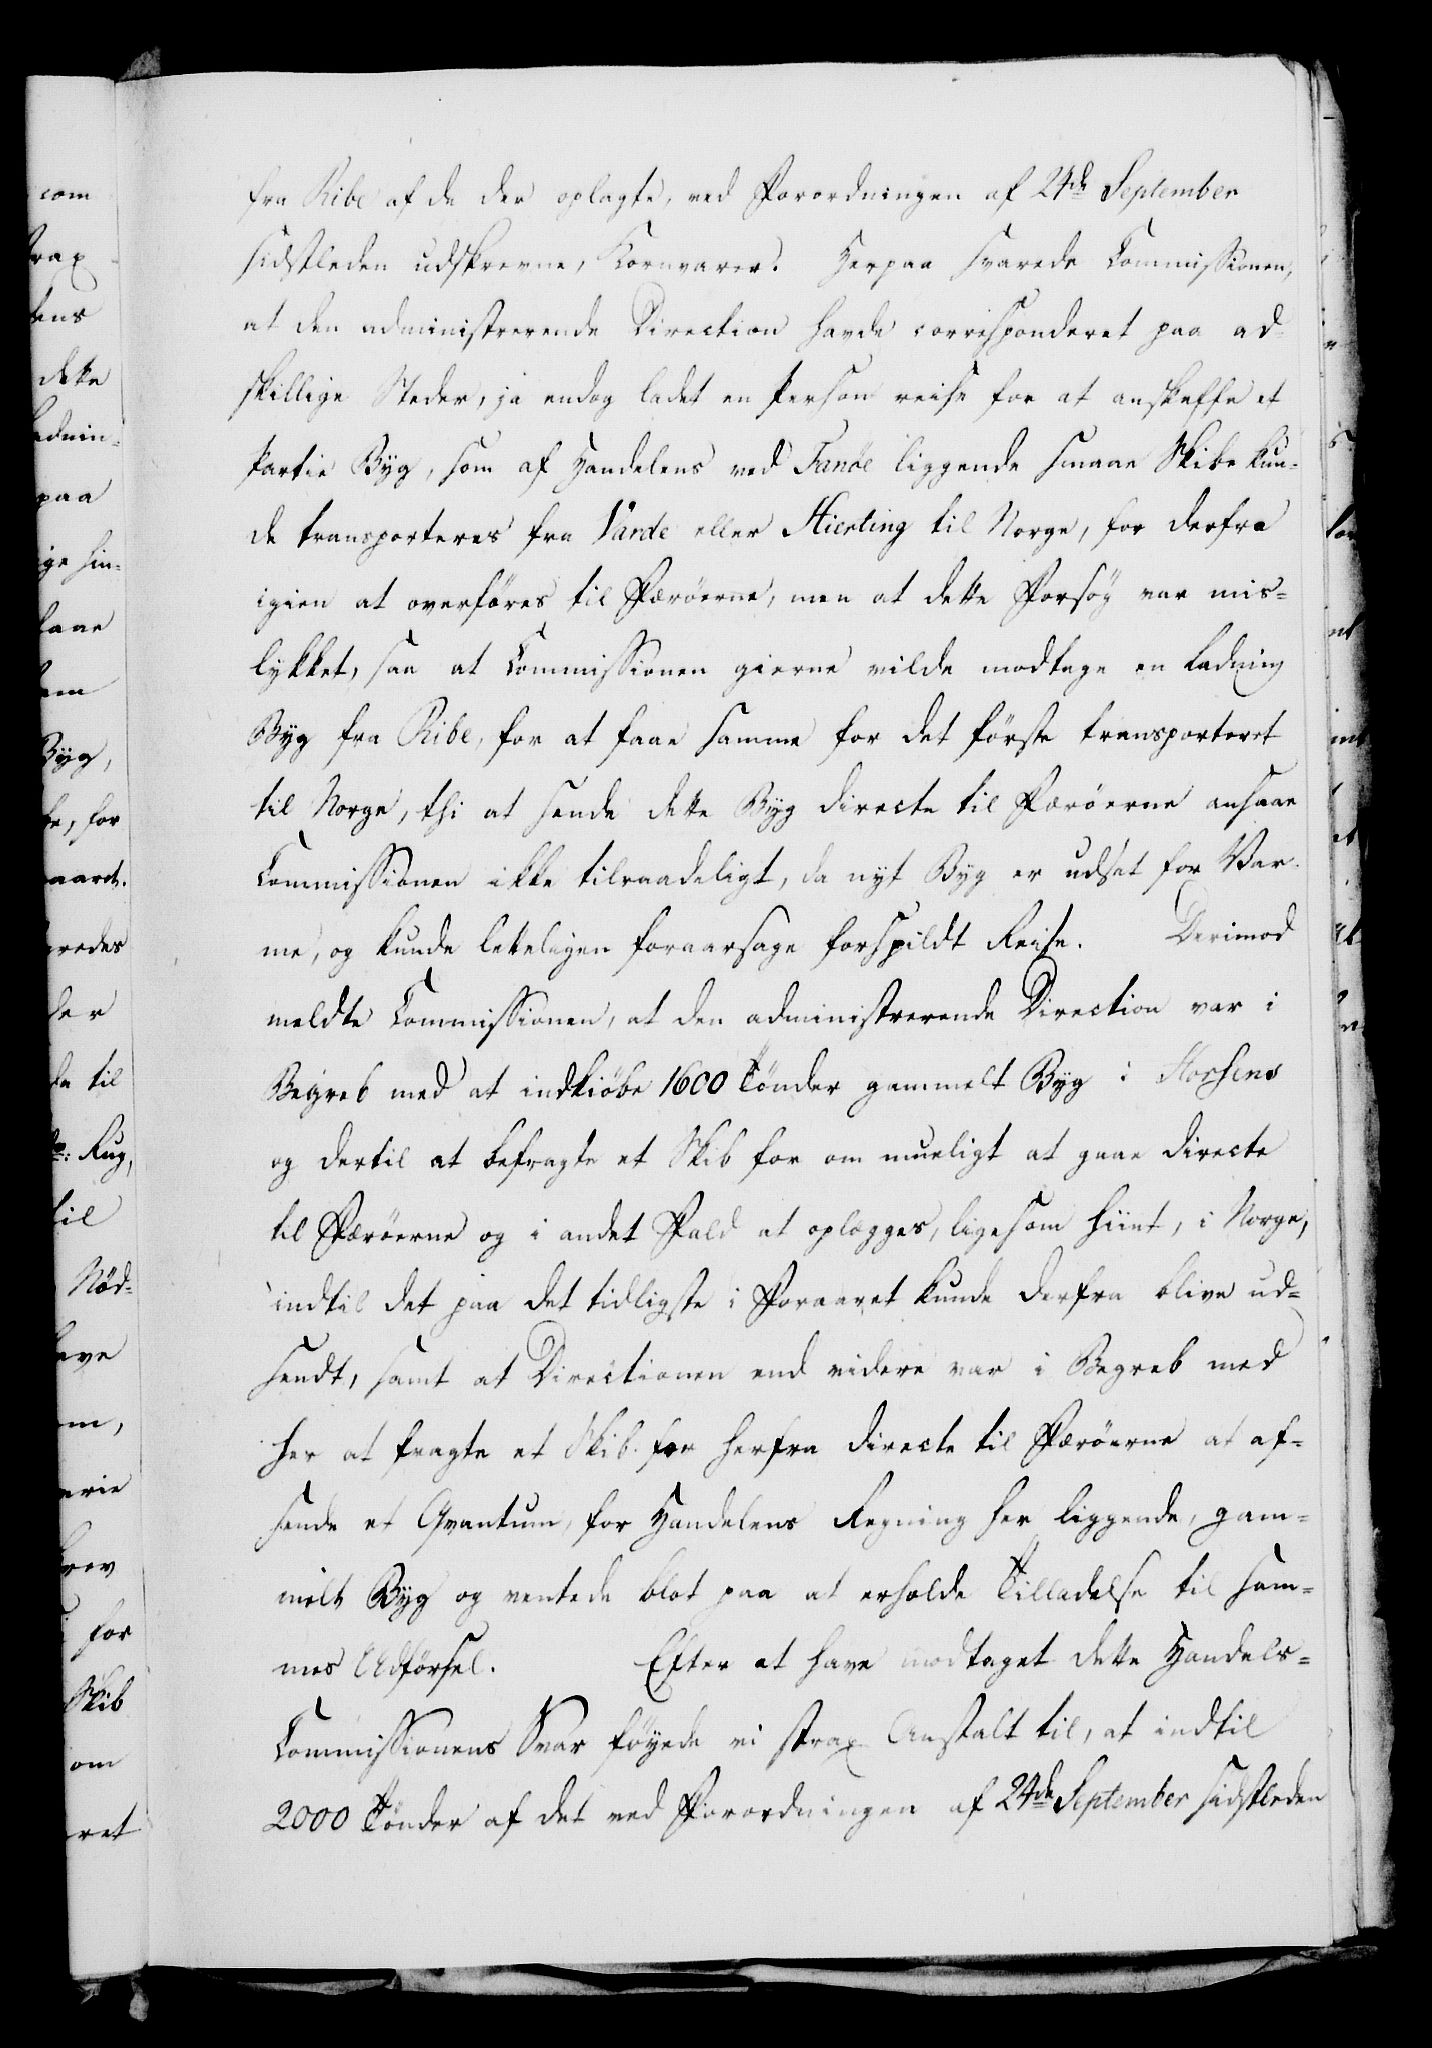 fra Ribe af de der oplagte, ved Forordningen af 24de September
sidstleden udskrevne, Kornvarer. Herpaa svarede Commissionen,
at den administrerende Direction havde corresponderet paa ad-
skillige Steder, ja endog ladet en Person reise for at anskaffe et
Partie Byg, som af Handelens ved Fanöe liggende smaae Skibe kun-
de transporteres fra Varde eller Hierting til Norge, for derfra
igien at overföres til Færöerne, men at dette Forsög var mis=
lykket, saa at Commissionen gierne vilde modtage en Ladning
Byg fra Ribe, for at faae samme for det förste transporteret
til Norge, thi at sende dette Byg directe til Færöerne ansaae
Commissionen ikke tilraadeligt, da nyt Byg er udsat for Var-
me, og kunde letteligen foraarsage forspildt Reise. Derimod
meldte Commissionen, at den administrerende Direction var i
Begreb med at indkiöbe 1600 Tönder gammelt Byg i Horsens
og dertil at befragte et Skib for om mueligt at gaae directe
til Færöerne og i andet Fald at oplægges, ligesom hiint, i Norge,
indtil det paa det tidligste i Foraaret kunde derfra blive ud=
sendt, samt at Directionen end videre var i Begreb med
her at fragte et Skib for herfra directe til Færöerne at af=
sende et Qvantum, for Handelens Regning her liggende, gam=
melt Byg og ventede blot paa at erholde Tilladelse til sam=
mes Udförsel. Efter at have modtaget dette Handels=
Commissionens Svar föyede vi strax Anstalt til, at indtil
2000 Tönder af det ved Forordningen af 24de September sidstleden